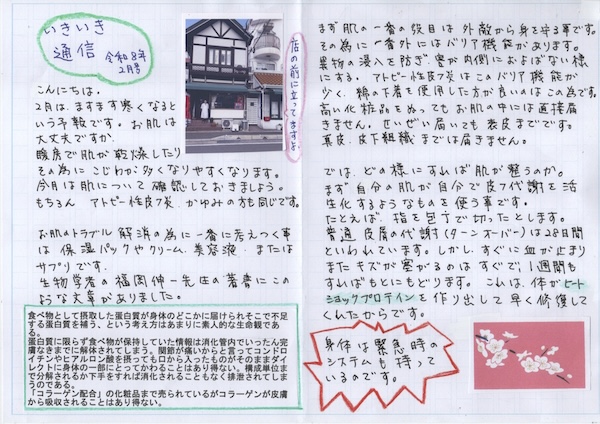 いきいき
通信
令和8年
2月号
店の前に立ってますよ。
こんにちは。
2月は、ますます寒くなると
いう予報です。お肌は
大丈夫ですか。
暖房で肌が乾燥したり
その為にこじわが多くなりやすくなります。
今月は肌について確認しておきましょう。
もちろん アトピー性皮フ炎、かゆみの方も同じです。
お肌のトラブル解消の為に一番に考えつく事
は 保湿パックやクリーム、美容液、または
サプリです。
生物学者の福岡伸一先生の著書にこの
ような文章がありました。
食べ物として摂取した蛋白質が身体のどこかに届けられそこで不足
する蛋白質を補う、という考え方はあまりに素人的な生命観であ
る。
蛋白質に限らず食物が保持していた情報は消化管内でいったん完
膚なきまでに解体されてしまう。関節が痛いからと言ってコンドロ
イチンやヒアルロン酸を摂っても口から入ったものがそのままダイ
レクトに身体の一部にとってかわることはあり得ない。構成単位ま
で分解されるか下手をすれば消化されることもなく排泄されてしま
うのである。
「コラーゲン配合」の化粧品まで売られているがコラーゲンが皮膚
から吸収されることはあり得ない。
まず肌の一番の役目は外敵から身を守る事です。
その為に一番外にはバリア機能があります。
異物の浸入を防ぎ、害が内側におよばない様
にする。アトピー性皮フ炎はこのバリア機能が
少く、綿の下着を使用した方が良いのはこの為です。
高い化粧品をぬってもお肌の中には直接届
きません。せいぜい届いても表皮までです。
真皮、皮下組織までは届きません。
では、どの様にすれば肌が整うのか。
まず自分の肌が自分で皮フ代謝を活
性化するようなものを使う事です。
たとえば、指を包丁で切ったとします。
普通皮膚の代謝(ターンオーバー)は28日間
といわれています。しかし、すぐに血が止まり
またキズが塞がるのはすぐで、1週間も
すればもとにもどります。これは、体がヒート
ショックプロテインを作り出して早く修復して
くれたからです。
身体は緊急時の
システムも持って
いるのです。